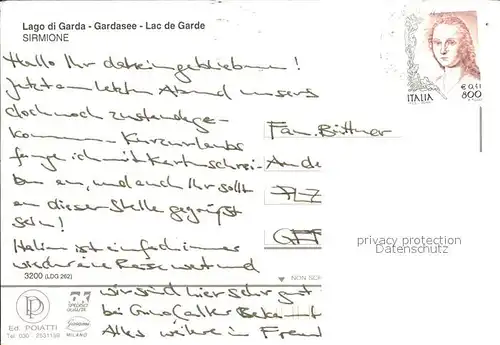 Lago di Garda - Gardasee - Lac de Garde
SIRMIONE
Hallo Ihr daheimgebliebenen!
Jetzt am letzten Abend unsers
doch noch zustandege-
kommen Kurzurlaubs
fange ich mit Kartenschrei-
ben an, und auch Ihr sollt
an dieser Stelle gegrüßt
sein!
Italien ist einfach immer
wieder eine Reise wert und
wir sind hier sehr gut
bei
Alles weitere in
3200 (LDG 262)
Ed. POIATTI
Tel. 030
SPECIAL
QUALITÀ
MILANO
€ 0,41
800
ITALIA
Fam. Büttner
An de
PLZ
privacy protection
Datenschutz
NON SCR